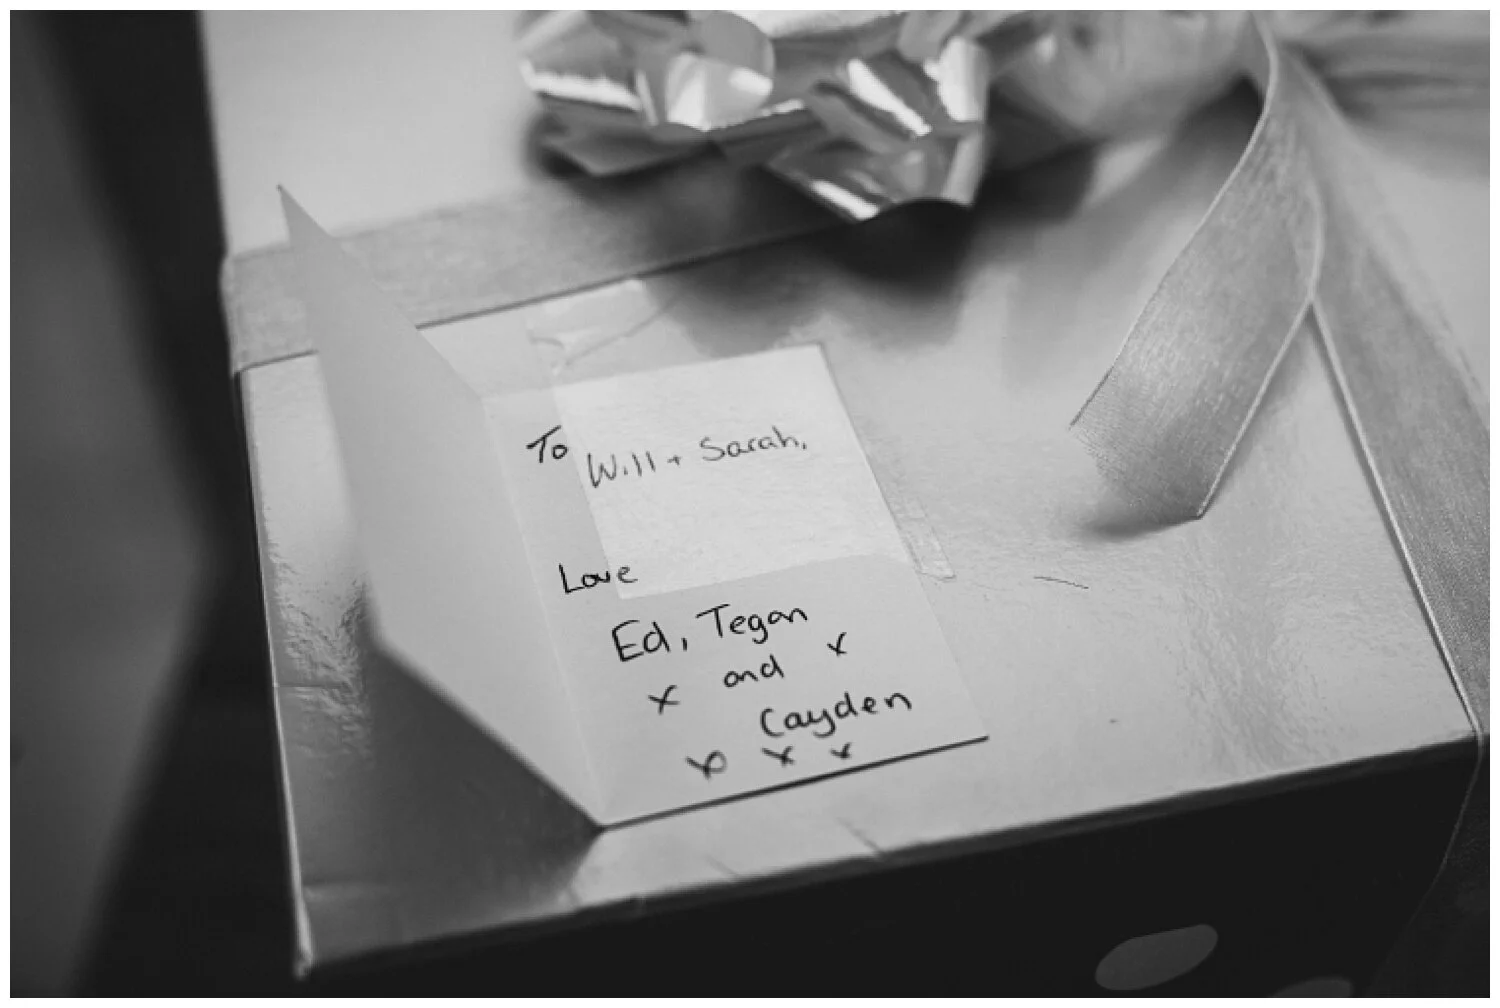 To Will + Sarah,
Love
Ed, Tegan
x and x
Cayden
x x x